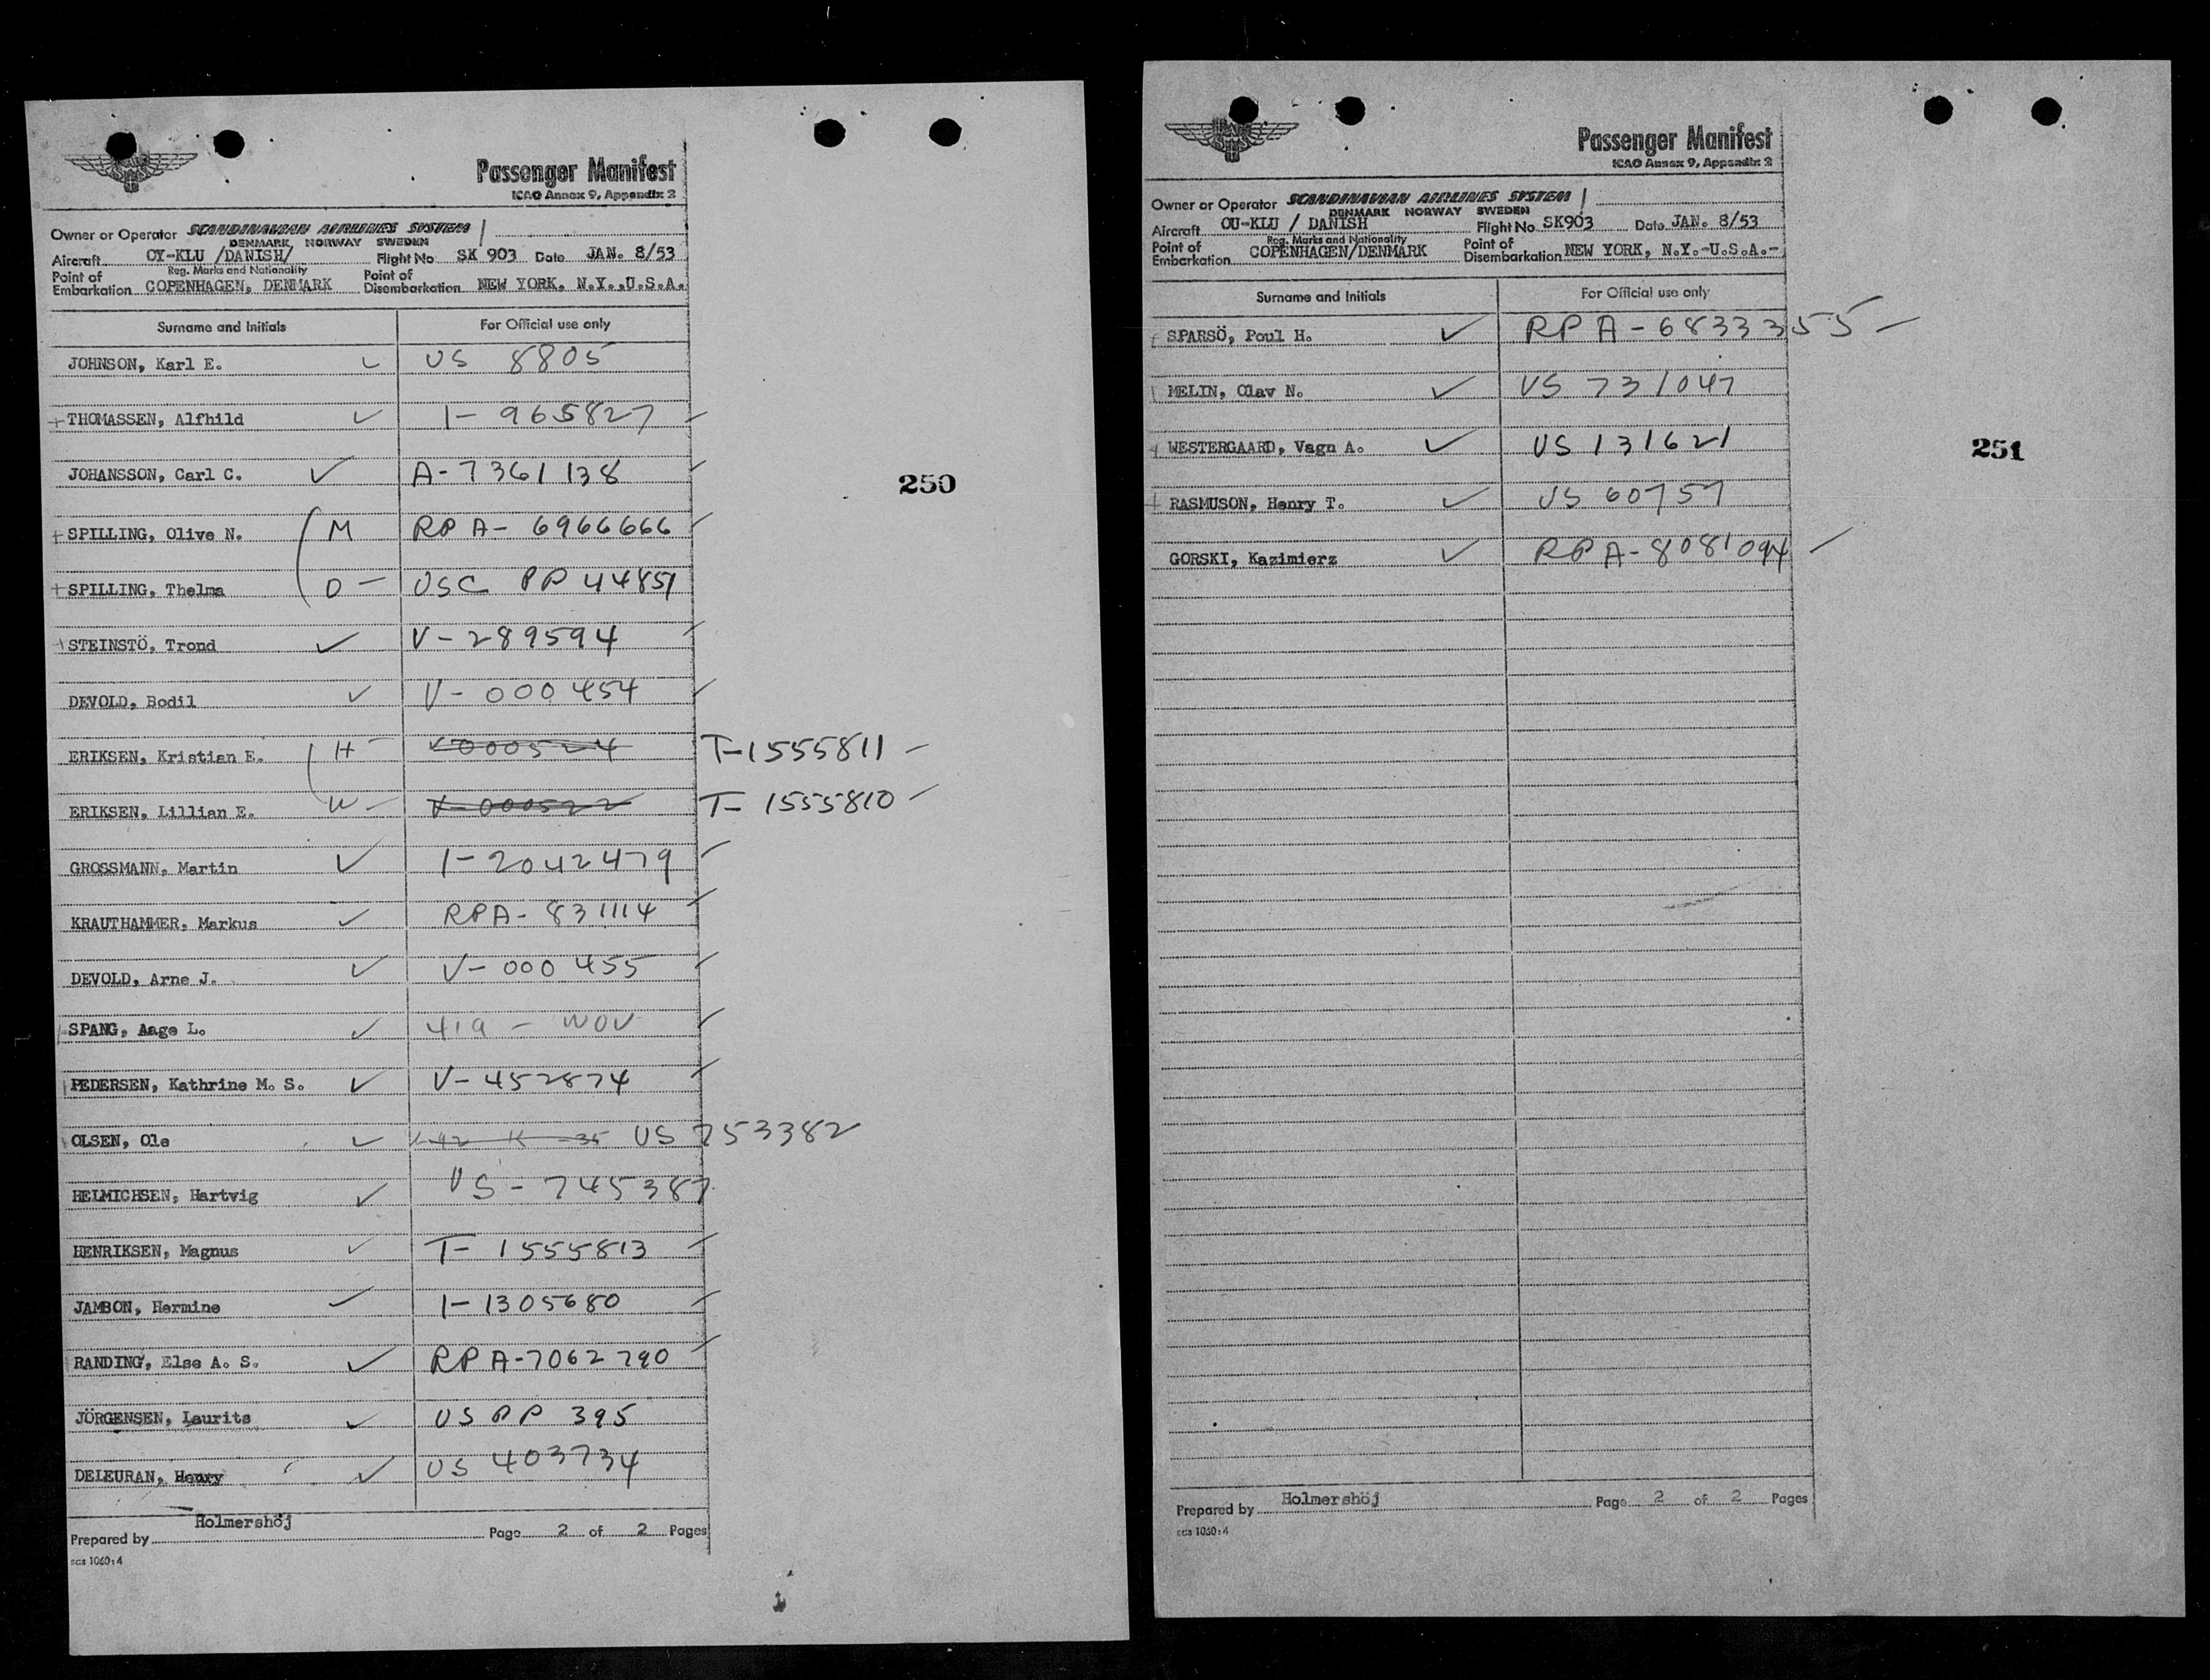 Passenger Manifest
ICAO Annex 9, Appendix 2
Owner or Operator SCANDINAVIAN AIRLINES SYSTEM
DENMARK NORWAY SWEDEN
Aircraft OY-KLU /DANISH/ Flight No SK 903 Date JAN. 8/53
Reg. Marks and Nationality
Point of Embarkation COPENHAGEN, DENMARK Point of Disembarkation NEW YORK, N.Y.,U.S.A.
Surname and Initials For Official use only
JOHNSON, Karl E. US 8805
THOMASSEN, Alfhild 1-965827
JOHANSSON, Carl C. A-7361138
250
SPILLING, Olive N. M RPA-6966666
SPILLING, Thelma D USC PP 44851
STEINSTÖ, Trond V-289594
DEVOLD, Bodil V-000454
ERIKSEN, Kristian E. H V000524 T-1555811
ERIKSEN, Lillian E. W V-000522 T-1555810
GROSSMANN, Martin 1-2042479
KRAUTHAMMER, Markus RPA-831114
DEVOLD, Arne J. V-000455
SPANG, Aage L. 419 - WOV
PEDERSEN, Kathrine M. S. V-452874
OLSEN, Ole US 753382
HELMICHSEN, Hartvig US-745387
HENRIKSEN, Magnus T-1555813
JAMBON, Hermine 1-1305680
RANDING, Else A. S. RPA-7062790
JÖRGENSEN, Laurits US PP 395
DELEURAN, Henry US 403734
Prepared by Holmershöj Page 2 of 2 Pages
scs 1060:4
Passenger Manifest
ICAO Annex 9, Appendix 2
Owner or Operator SCANDINAVIAN AIRLINES SYSTEM
DENMARK NORWAY SWEDEN
Aircraft OU-KLU / DANISH Flight No SK903 Date JAN. 8/53
Reg. Marks and Nationality
Point of Embarkation COPENHAGEN/DENMARK Point of Disembarkation NEW YORK, N.Y.-U.S.A.-
Surname and Initials For Official use only
SPARSÖ, Poul H. RPA-6833355
MELIN, Olav N. US 731047
WESTERGAARD, Vagn A. US 131621
251
RASMUSON, Henry T. US 60757
GORSKI, Kazimierz RPA-8081094
Prepared by Holmershöj Page 2 of 2 Pages
scs 1060:4